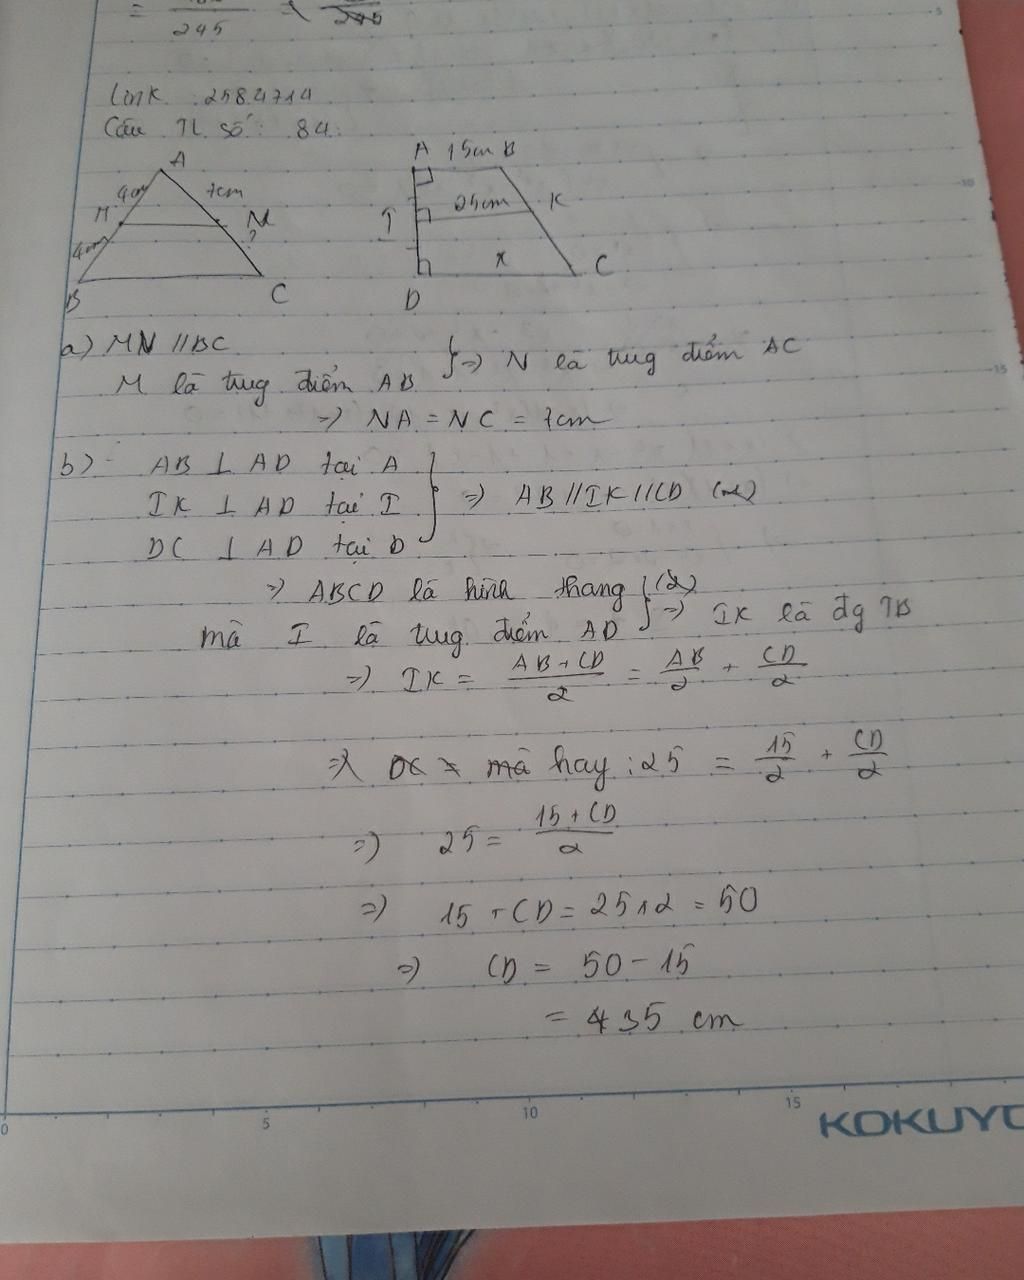 = 245 = 245
Link : 2584714
Câu TL số : 84:
A
4cm 7cm
M N
4cm ?
B C
A 15cm B
I 25cm K
x
D C
a) MN // BC
M là tug điểm AB } => N là tug điểm AC
=> NA = NC = 7cm
b) - AB ⊥ AD tại A
IK ⊥ AD tại I } => AB // IK // CD
DC ⊥ AD tại D
=> ABCD là hình thang
mà I là tug điểm AD } => IK là đg TB
=> IK = (AB + CD)/2 = AB/2 + CD/2
=> mà hay : 25 = 15/2 + CD/2
=> 25 = (15 + CD)/2
=> 15 + CD = 25 x 2 = 50
=> CD = 50 - 15
= 35 cm
0 5 10 15
KOKUYO